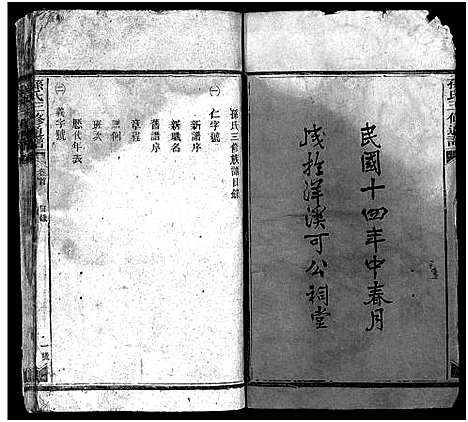 民國十四年中春月
成於洋溪可公祠堂
孫氏三修族譜目錄
㈠仁字號
新譜序
新職名
舊譜序
章程
譜例
班次
歷代年表
㈡義字號
孫氏三修通譜
卷首
目錄
一號